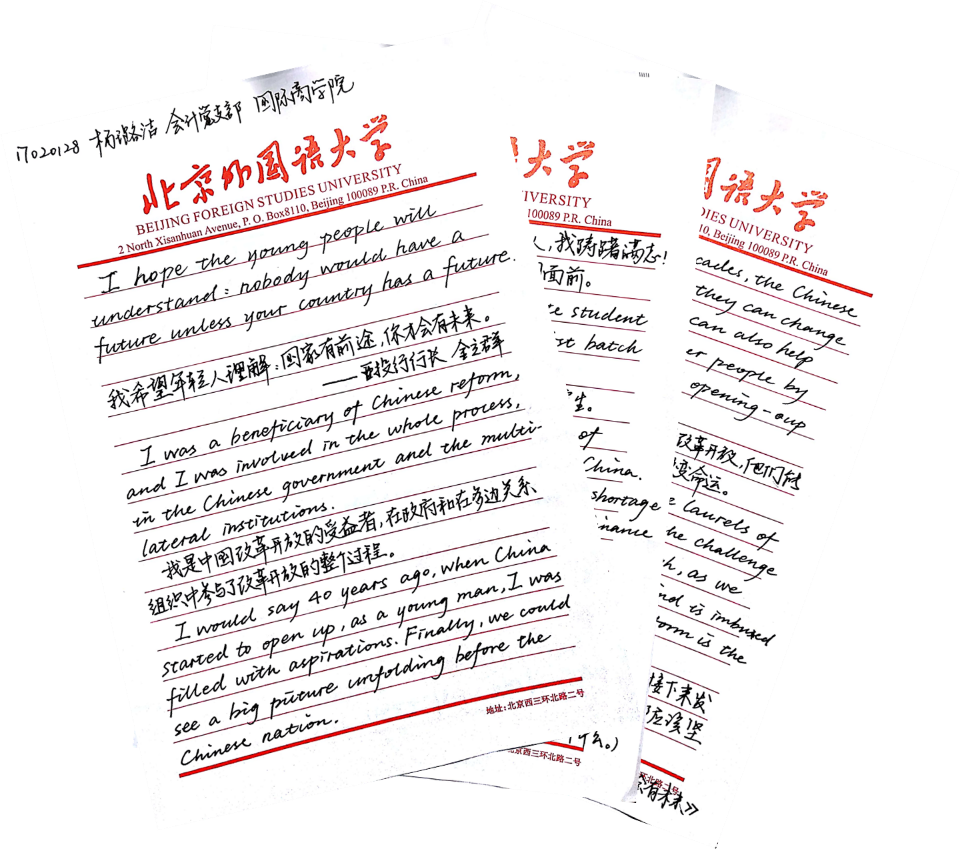 17020128 杨璐洁 会计党支部 国际商学院
北京外国语大学
BEIJING FOREIGN STUDIES UNIVERSITY
2 North Xisanhuan Avenue, P. O. Box8110, Beijing 100089 P.R. China
I hope the young people will
understand: nobody would have a
future unless your country has a future.
我希望年轻人理解：国家有前途，你才会有未来。
——亚投行行长 金立群
I was a beneficiary of Chinese reform,
and I was involved in the whole process,
in the Chinese government and the multi-
lateral institutions.
我是中国改革开放的受益者，在政府和在多边关系
组织中参与了改革开放的整个过程。
I would say 40 years ago, when China
started to open up, as a young man, I was
filled with aspirations. Finally, we could
see a big picture unfolding before the
Chinese nation.
地址：北京西三环北路二号
大学
IVERSITY
100089 P.R. China
人，我踌躇满志！
面前。
te student
st batch
生。
of
China.
shortage
inance
什么。)
北京西三环北路二号
语大学
DIES UNIVERSITY
10, Beijing 100089 P.R. China
cades, the Chinese
they can change
can also help
er people by
opening-oup
改革开放，他们能
变命运。
e laurels of
he challenge
h, as we
nd is imbused
orm is the
接下来发
应溪坚
环北路二号
会有未来》